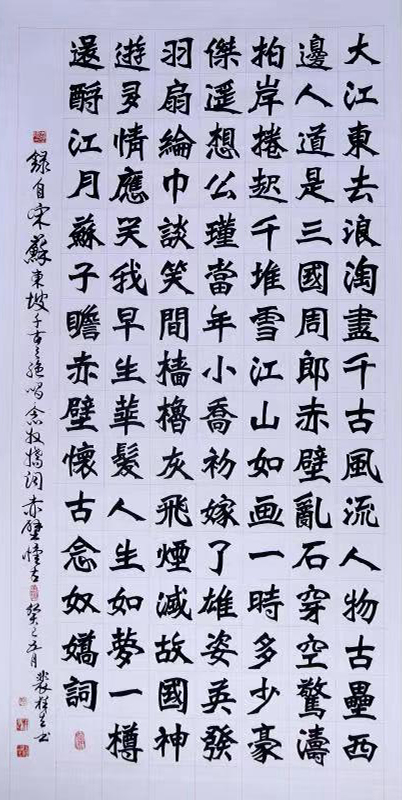 大江東去浪淘盡千古風流人物古壘西
邊人道是三國周郎赤壁亂石穿空驚濤
拍岸捲起千堆雪江山如画一時多少豪
傑遥想公瑾當年小喬初嫁了雄姿英發
羽扇綸巾談笑間檣櫓灰飛煙滅故國神
遊多情應笑我早生華髮人生如夢一樽
還酹江月蘇子瞻赤壁懷古念奴嬌詞
錄自宋蘇東坡千古之絕唱念奴嬌詞赤壁懷古癸巳五月裴書